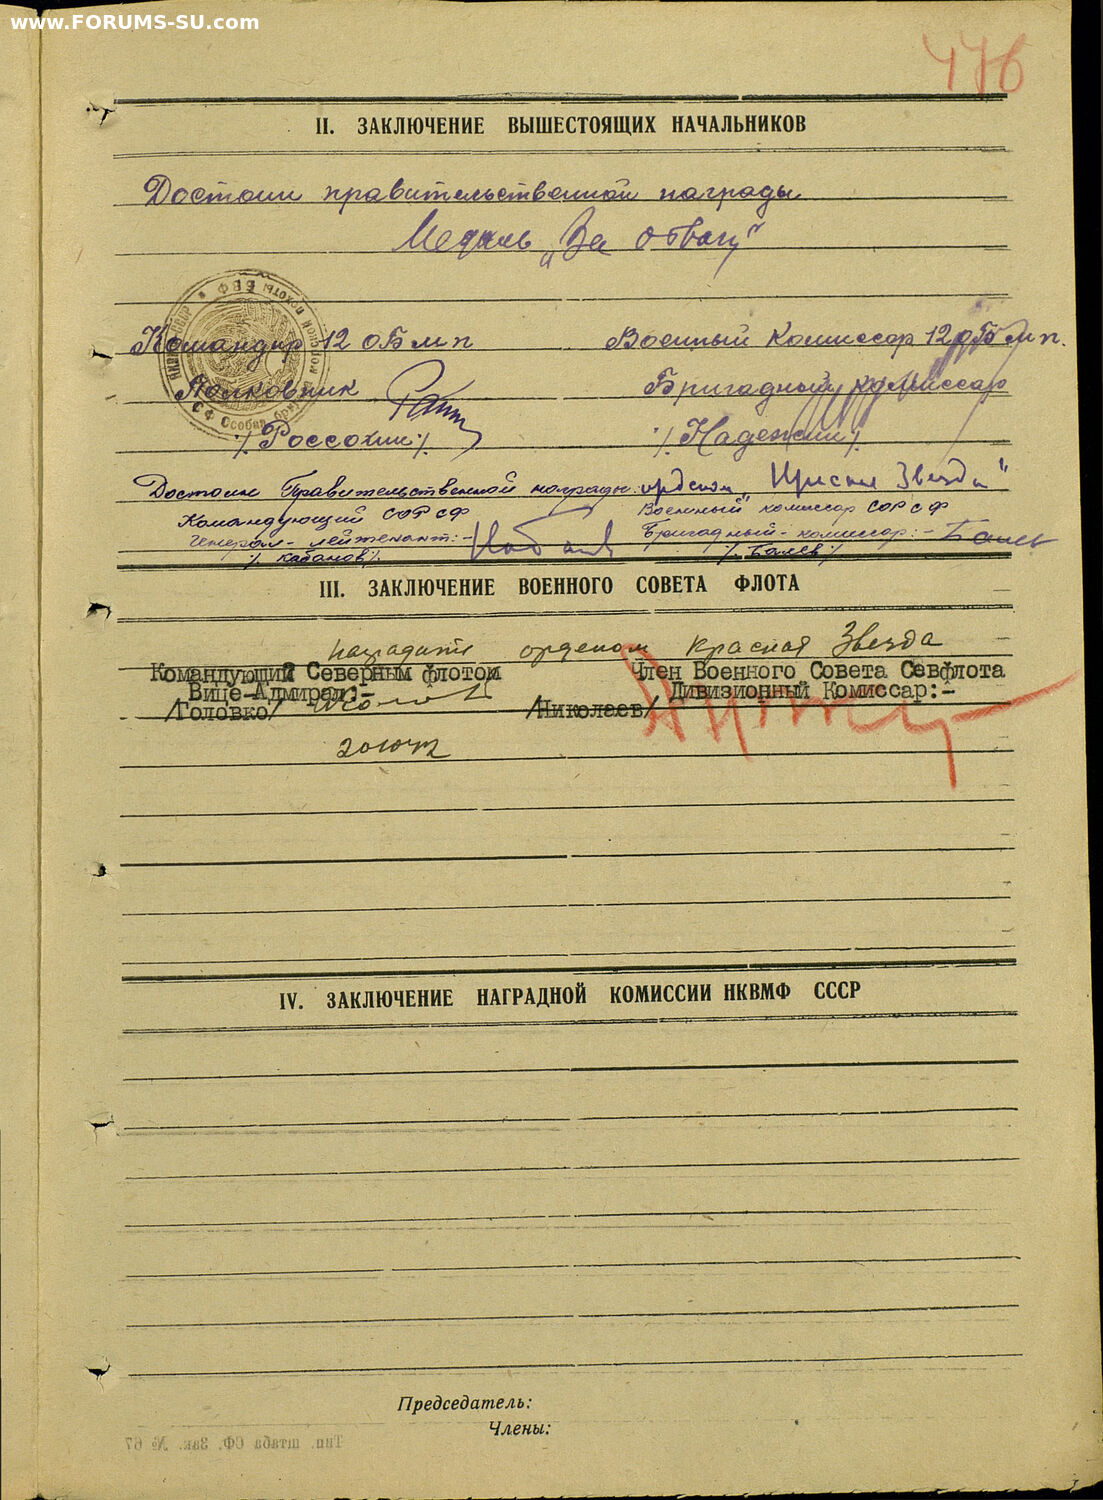 www.FORUMS-SU.com
476
II. ЗАКЛЮЧЕНИЕ ВЫШЕСТОЯЩИХ НАЧАЛЬНИКОВ
Достоин правительственной награды
Медаль „За отвагу"
Командир 12 ОБмп
Военный Комиссар 12 ОБмп.
Полковник
Бригадный комиссар
/Россохин/
/Надежин/
Достоин Правительственной награды орденом „Красная Звезда"
Командующий СОР СФ
Военный комиссар СОР СФ
Генерал-лейтенант:-
Бригадный-комиссар:-
/Кабанов/
/Балев/
III. ЗАКЛЮЧЕНИЕ ВОЕННОГО СОВЕТА ФЛОТА
Наградить орденом Красная Звезда
Командующий Северным флотом
Член Военного Совета Севфлота
Вице-Адмирал:-
Дивизионный Комиссар:-
/Головко/
/Николаев/
IV. ЗАКЛЮЧЕНИЕ НАГРАДНОЙ КОМИССИИ НКВМФ СССР
Председатель:
Члены:
Тип. штаба СФ. Зак. № 67